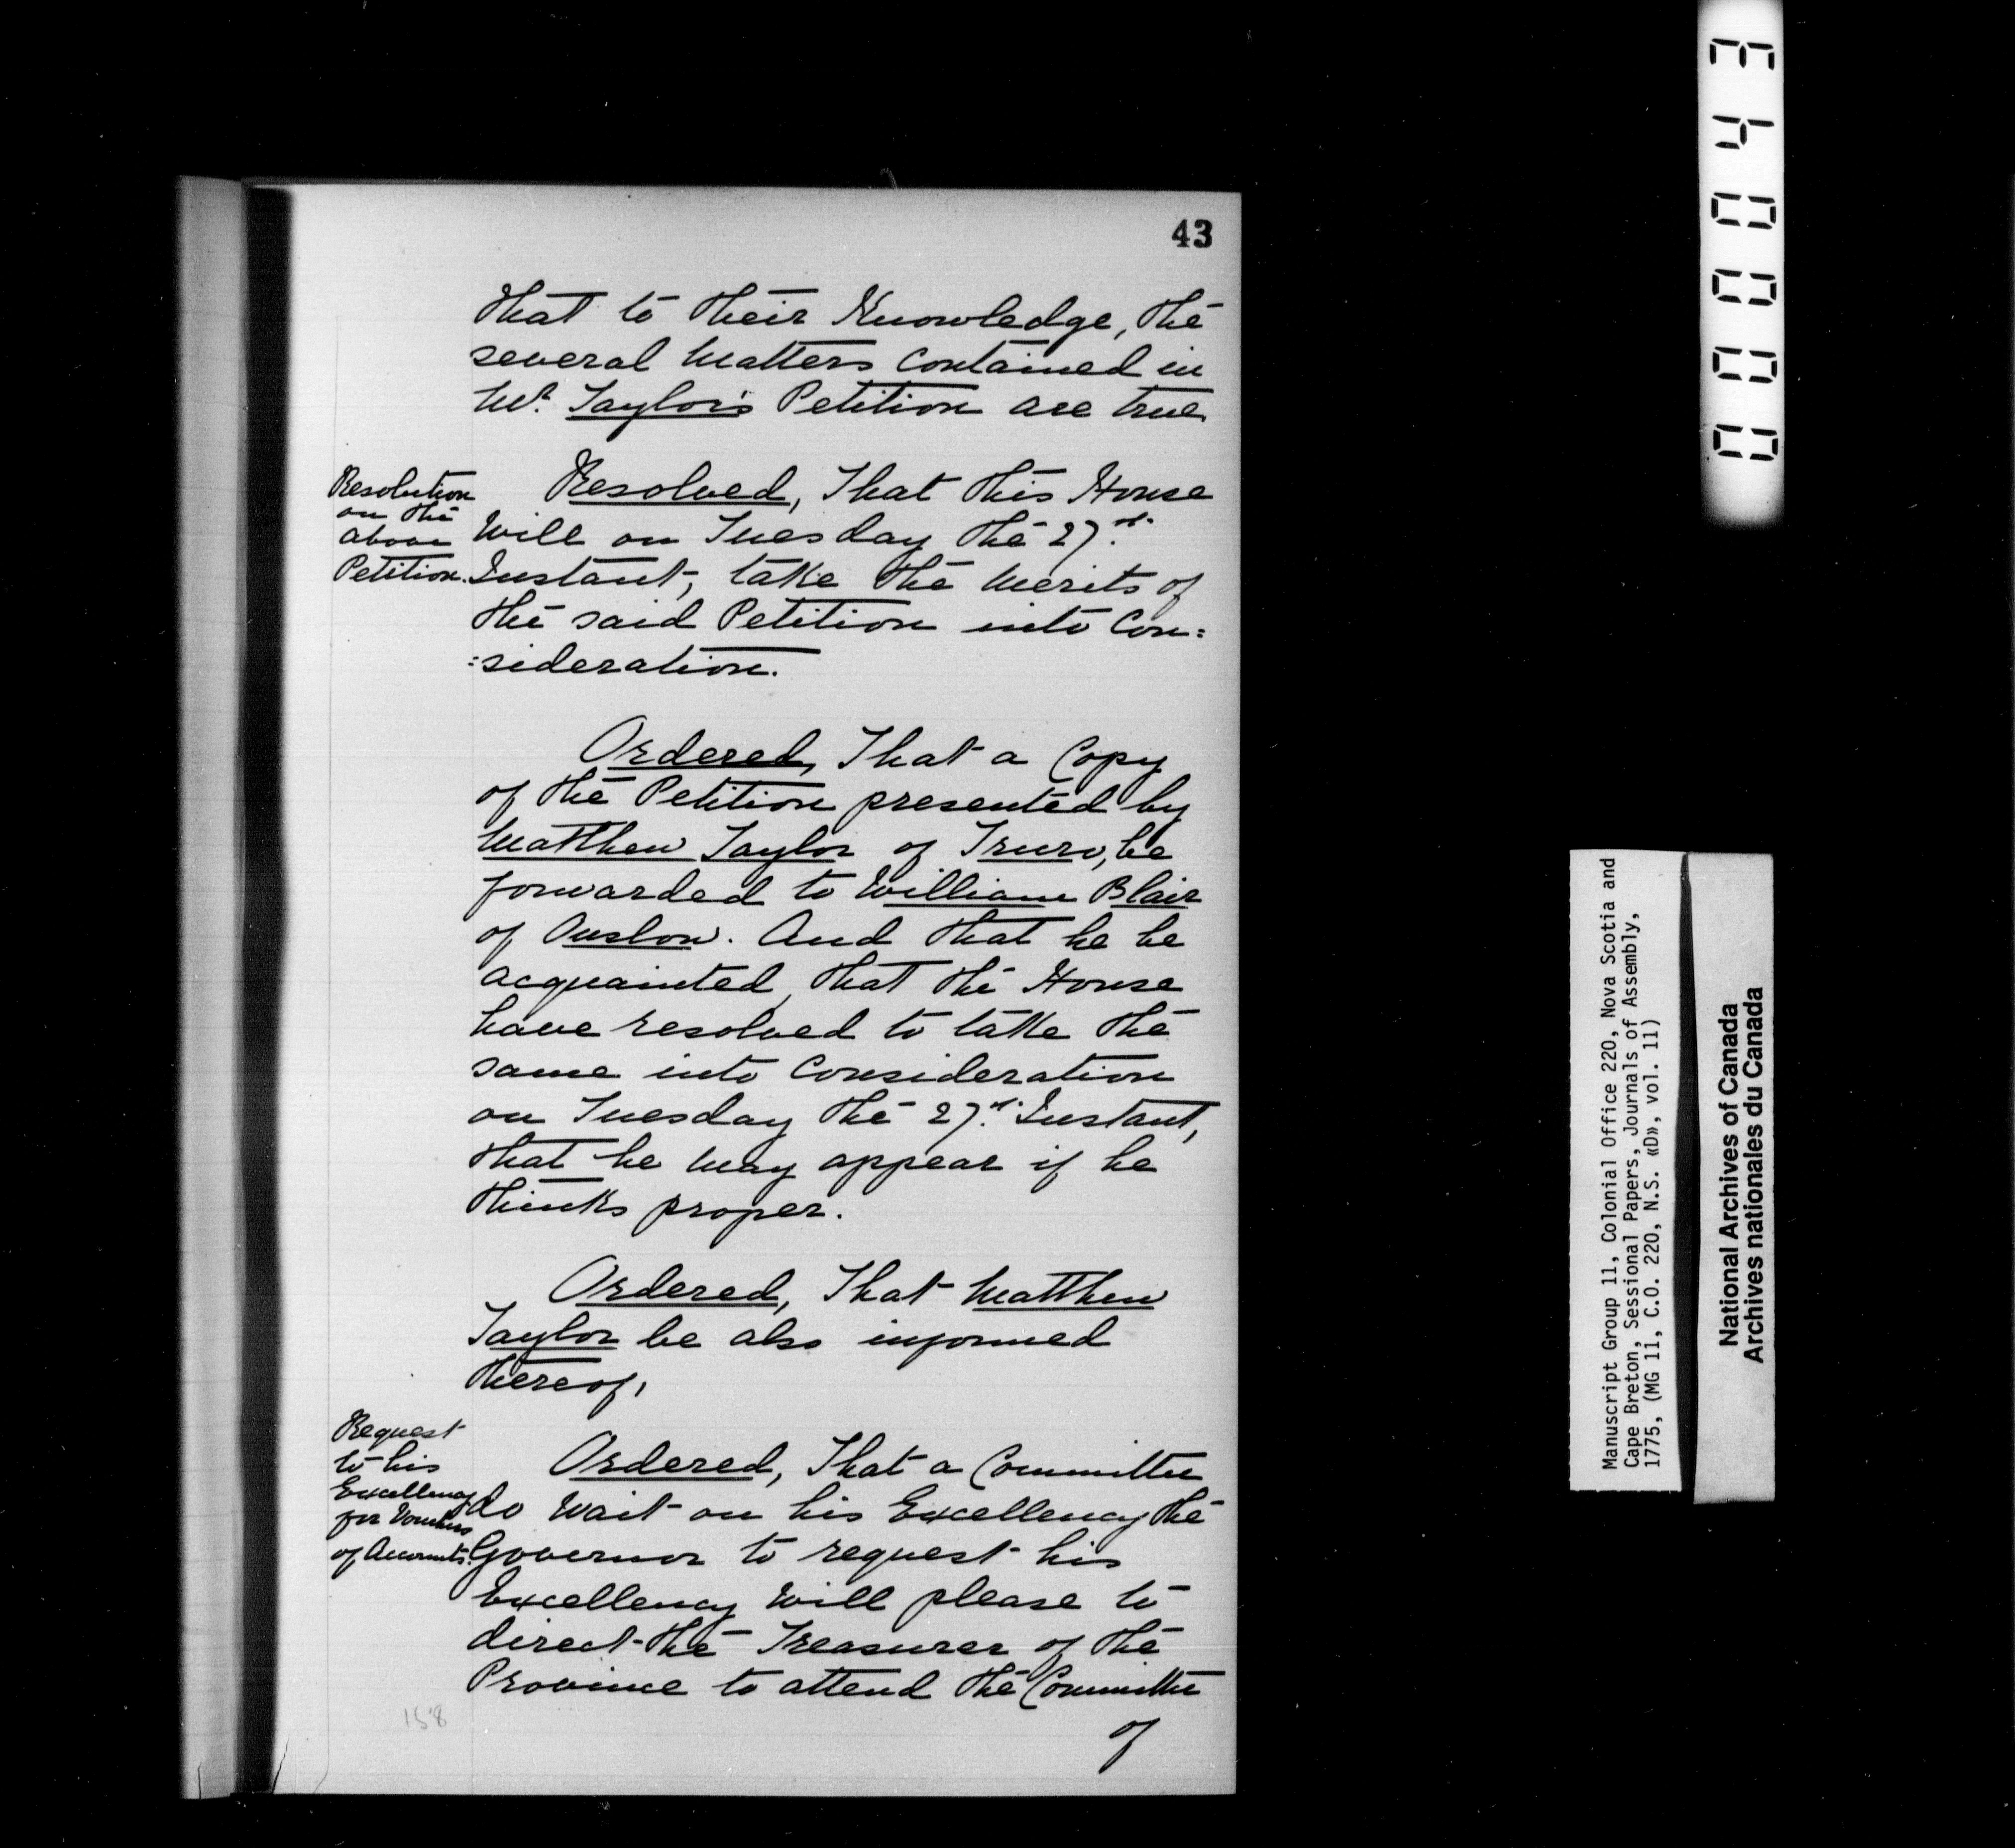 43
that to their Knowledge, the
several Matters Contained in
Mr. Taylor's Petition are true.
Resolution
on the
above
Petition.
Resolved, That this House
Will on Tuesday the 27th.
Instant, take the Merits of
the said Petition into Con=
=sideration.
Ordered, That a Copy
of the Petition presented by
Matthew Taylor of Truro, be
forwarded to William Blair
of Onslow. And that he be
acquainted, that the House
have resolved to take the
same into Consideration
on Tuesday the 27th. Instant,
that he May appear if he
thinks proper.
Ordered, That Matthew
Taylor be also informed
thereof.
Request
to his
Excellency
for Vouchers
of Accounts.
Ordered, That a Committee
do Wait on his Excellency the
Governor to request his
Excellency Will please to
direct the Treasurer of the
Province to attend the Committee
of
158
000043
Manuscript Group 11, Colonial Office 220, Nova Scotia and
Cape Breton, Sessional Papers, Journals of Assembly,
1775, (MG 11, C.O. 220, N.S. «D», vol. 11)
National Archives of Canada
Archives nationales du Canada